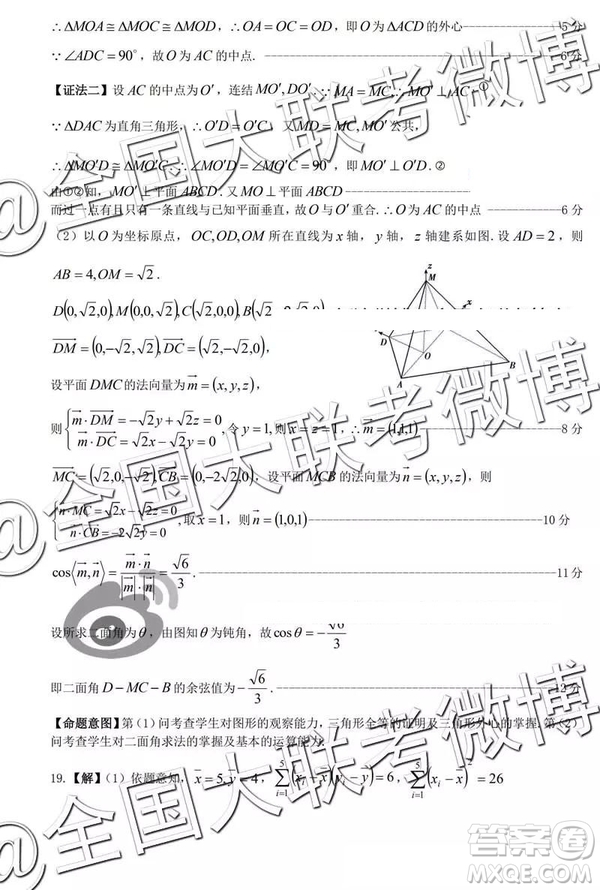 ∴ΔMOA≅ΔMOC≅ΔMOD，∴OA=OC=OD，即O为ΔACD的外心 5分
∵∠ADC=90°，故O为AC的中点. 6分
【证法二】设AC的中点为O′，连结MO′,DO′.∵MA=MC,∴MO′⊥AC.①
∵ΔDAC为直角三角形，∴O′D=O′C 又MD=MC,MO′公共，
∴ΔMO′D≅ΔMO′C ∴∠MO′D=∠MO′C=90°，即MO′⊥O′D.②
由①②知，MO′⊥平面ABCD.又MO⊥平面ABCD
而过一点有且只有一条直线与已知平面垂直，故O与O′重合.∴O为AC的中点 6分
（2）以O为坐标原点，OC,OD,OM所在直线为x轴，y轴，z轴建系如图.设AD=2，则
AB=4,OM=√2.
D(0,√2,0),M(0,0,√2),C(√2,0,0),B(√2
z
M
D
O
A
B
DM=(0,-√2,√2),DC=(√2,-√2,0)，
设平面DMC的法向量为m=(x,y,z)，
则{m·DM=-√2y+√2z=0
m·DC=√2x-√2y=0,令y=1,则x=z=1,∴m=(1,1,1) 8分
MC=(√2,0,-√2),CB=(0,-2√2,0)，设平面MCB的法向量为n=(x,y,z)，则
{n·MC=√2x-√2z=0
n·CB=-2√2y=0,取x=1，则n=(1,0,1) 10分
cos⟨m,n⟩=m·n/|m|·|n|=√6/3. 11分
设所求二面角为θ，由图知θ为钝角，故cosθ=-√6/3
即二面角D-MC-B的余弦值为-√6/3. 12分
【命题意图】第（1）问考查学生对图形的观察能力，三角形全等的证明及三角形外心的掌握.第（2）
问考查学生对二面角求法的掌握及基本的运算能力.
19.【解】（1）依题意知，x̄=5,ȳ=4，∑(i=1→5)(xᵢ-x̄)(yᵢ-ȳ)=6，∑(i=1→5)(xᵢ-x̄)²=26
@全国大联考微博
@全国大联考微博
@全国大联考微博
答案圈
MXQE.COM